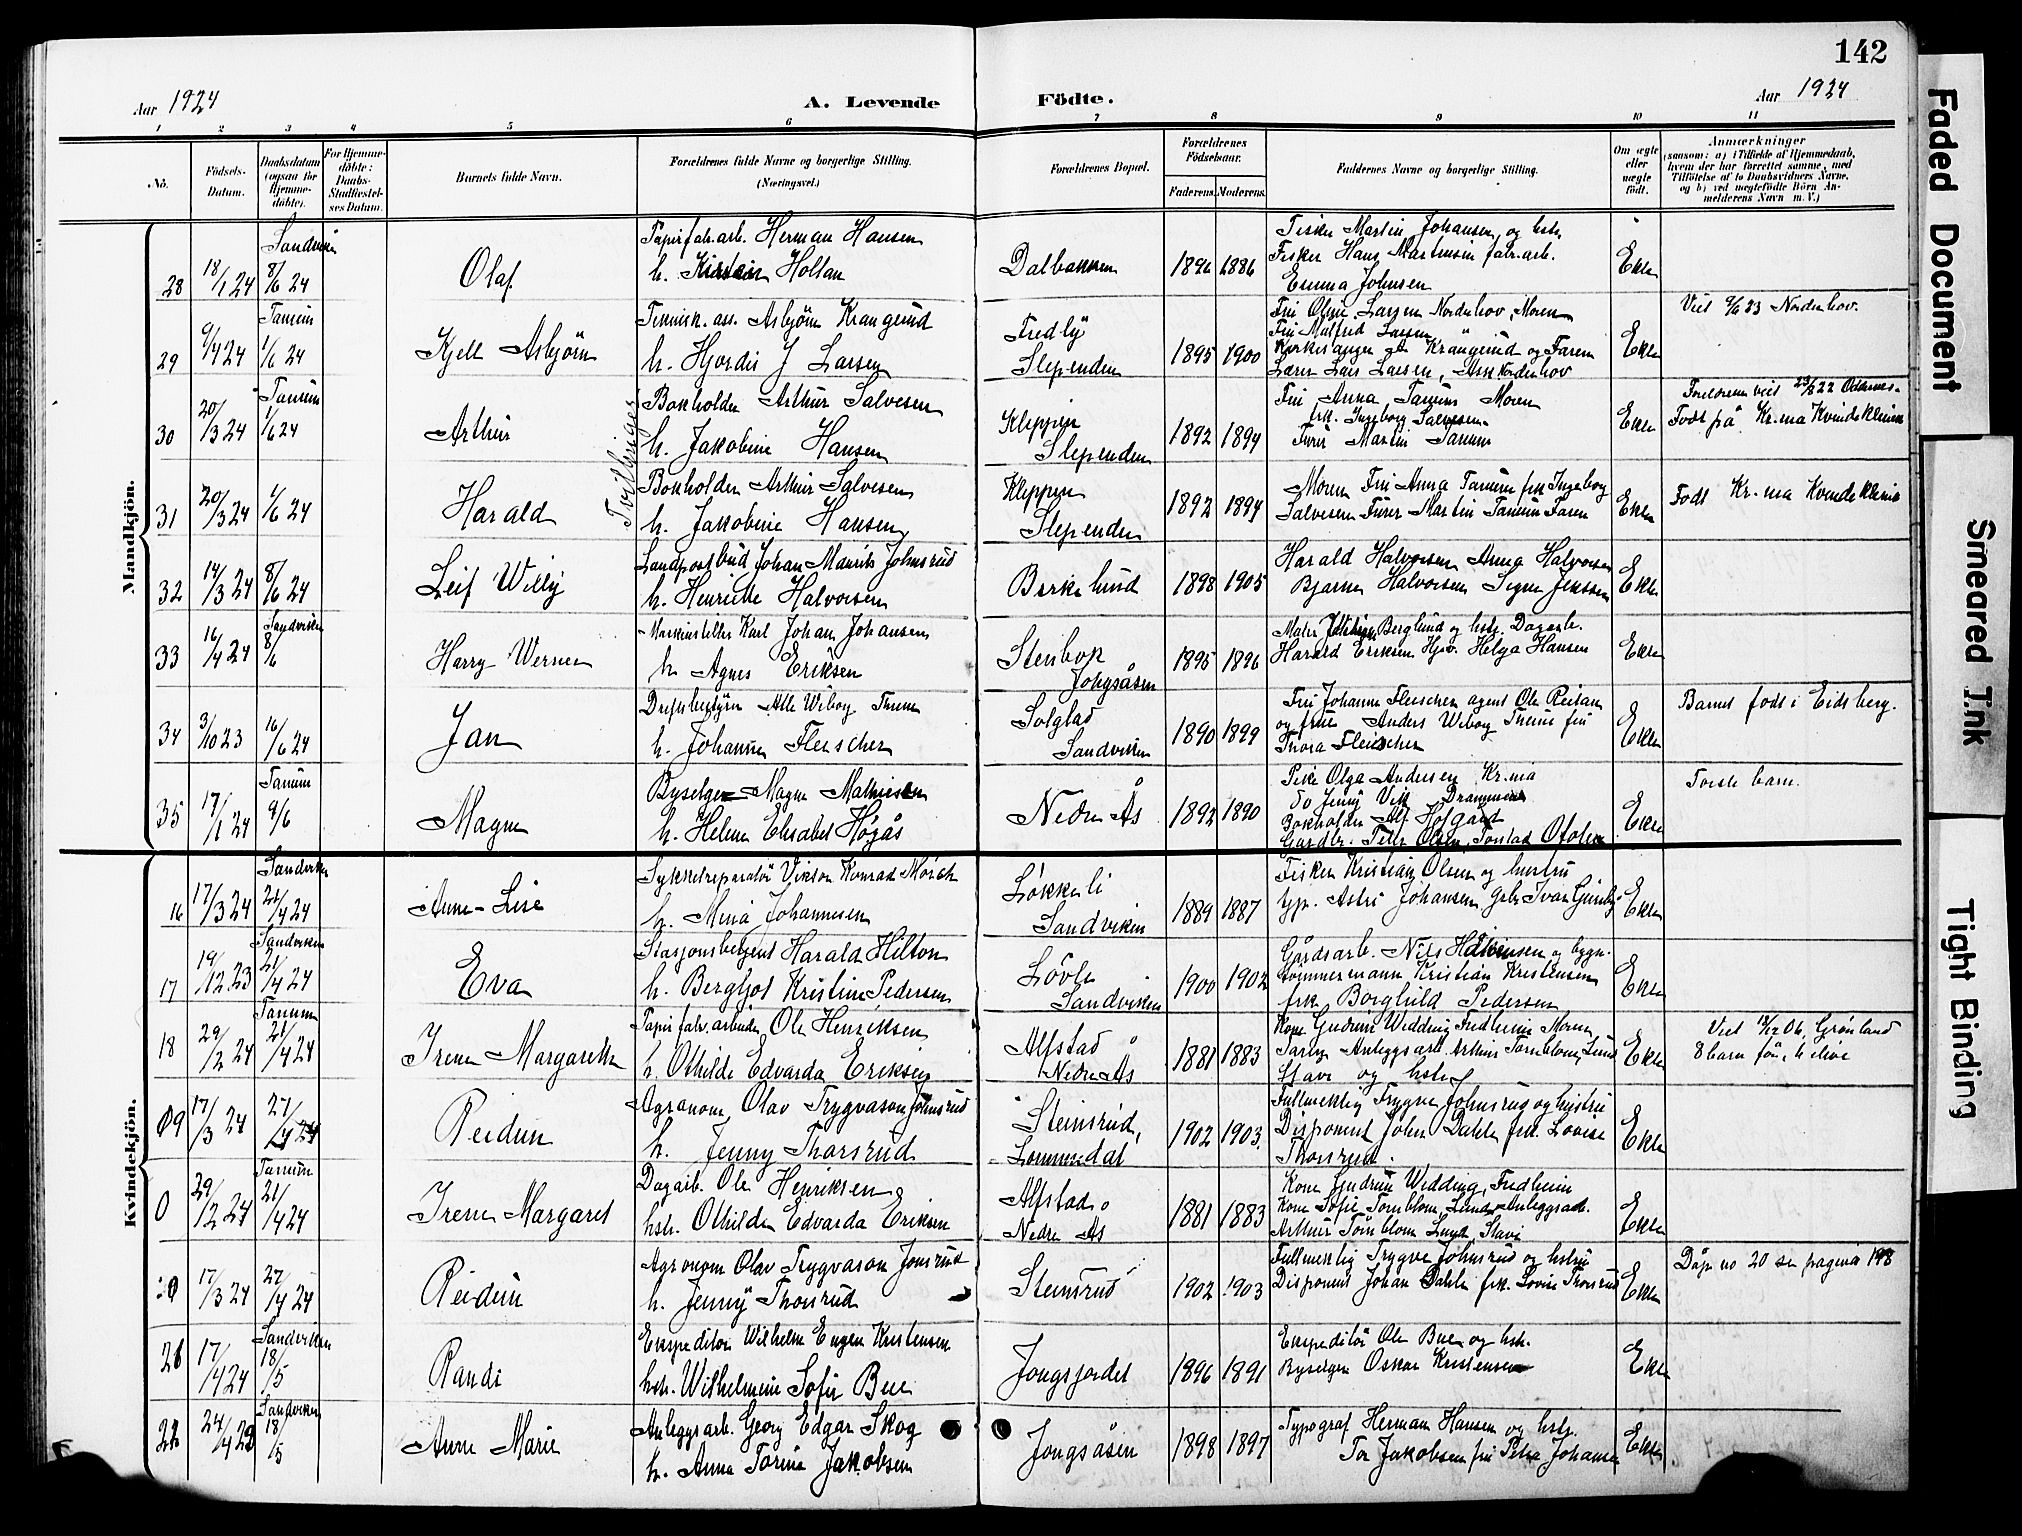 142
Aar 1924
A. Levende
Födte.
Aar 1924
1 2 3 4 5 6 7 8 8 9 10 11
No.
Födsels-
Datum.
Daabsdatum
(ogsaa for
Hjemme-
döbte).
For Hjemme-
döbte:
Daabs-
Stadfæstel-
ses Datum.
Barnets fulde Navn.
Forældrenes fulde Navne og borgerlige Stilling.
(Næringsvei.)
Forældrenes Bopæl.
Forældrenes
Födselsaar.
Faderens. Moderens.
Faddernes Navne og borgerlige Stilling.
Om ægte
eller
uægte
födt.
Anmærkninger
(saasom: a) i Tilfælde af Hjemmedaab,
hvem der har forrettet samme, med
Tilföielse af to Daabsvidners Navne,
og b) ved uægtefödte Börn An-
melderens Navn m. V.)
Mandkjön.
28
18/1 24
Sandvika
8/6 24
Olaf
Papirfabr.arb. Herman Hansen
h. Kirsten Holtan
Dalbakken
1896 1886
Fisker Martin Johansen og hstr.
Fisker Hans Martinsen fabr.arb.
Emma Johnsen
Ekte
29
9/4 24
Tanum
1/6 24
Kjell Asbjörn
Teknisk. ass. Asbjörn Krangerud
h. Hjordis J Larsen
Fredly
Slependen
1895 1900
Fru Olga Larsen Norderhov, Moren
Fru Malfred Larsen
Kirkesanger Krangerud og Faren
Lærer Lars Larsen, Ask Norderhov
Ekte
Viet 9/6 23 Norderhov.
30
20/3 24
Tanum
1/6 24
Arthur
Tvillinger
Bokholder Arthur Salvesen
h. Jakobine Hansen
Kleppen
Slependen
1892 1894
Fru Anna Tanum Moren
frk. Ingeborg Salvesen
Furer Martin Tanum
Ekte
Foreldrene viet 23/8 22
Født på Kr.ma Kvindeklinik
31
20/3 24
1/6 24
Harald
Bokholder Arthur Salvesen
h. Jakobine Hansen
Kleppen
Slependen
1892 1894
Moren Fru Anna Tanum frk Ingeborg
Salvesen Furer Martin Tanum Faren
Ekte
Født Kr.ma Kvindeklinik
32
14/3 24
8/6 24
Leif Willy
Landpostbud Johan Maurits Johnsrud
h. Henriette Halvorsen
Berkelund
1898 1905
Harald Halvorsen Anna Halvorsen
Bjarne Halvorsen Signe Jenssen
Ekte
33
16/4 24
Sandviken
8/6
Harry Werner
Maskinstiller Karl Johan Johansen
h. Agnes Eriksen
Stenbok
Jongsåsen
1895 1896
Maler Berglund og hstr. Dagarb.
Harald Eriksen Hjv. Helga Hansen
Ekte
34
3/10 23
16/6 24
Jan
Driftsbestyrer Atle Wiborg Thune
h. Johanne Fleischer
Solglad
Sandviken
1890 1899
Fru Johanne Fleischer agent Ole Reitan
og frue Anders Wiborg Thune fru
Thora Fleischer
Ekte
Barnet født i Eidsberg.
35
17/1 24
Tanum
9/6
Magne
Byselger Magne Mathiesen
h. Helene Elisabet Høgås
Nedre Ås
1892 1890
Pike Olga Andersen Kr.ma
do Jenny Vik Drammen
Bokholder Alf Hofgård
Gardbr. Olsen,
Ekte
Første barn.
Kvindekjön.
16
17/3 24
Sandviken
21/4 24
Anne-Lise
Sykkelreparatör Viktor Konrad Mörch
h. Mina Johannesen
Løkkeli
Sandviken
1889 1887
Fisker Kristian Olsen og hustru
typ. Astri Johansen, Gbr Ivar Ginsby
Ekte
17
19/12 23
Sandviken
21/4 24
Eva
Stasjonsbetjent Harald Hilton
h. Bergljot Kristine Pedersen
Løvli
Sandviken
1900 1902
Gårdsarb. Nils Halvorsen og bygn.
tömmermann Kristian Kristensen
frk. Borghild Pedersen
Ekte
18
29/2 24
Tanum
21/4 24
Irene Margarethe
Papirfabr.arbeider Ole Henriksen
h. Othilde Edvarda Eriksen
Alfstad
Nedre Ås
1881 1883
Kone Gudrun Wedding Fredheim Moren
Anleggsarb. Arthur Törnblom, Lund
Stavi og hstr
Ekte
Viet 12 06, Grønland
8 barn før, 4 i live
19
17/3 24
27/4 24
Reidun
Agronom Olav Trygvason Johnsrud
h. Jenny Thorsrud
Steinsrud,
Lommedal
1902 1903.
Fullmektig Trygve Johnsrud og hustru
Disponent Johan Dahle frk. Lovise
Thorsrud.
Ekte
0
29/2 24
Tanum
21/4 24
Irene Margaret
Dagarb. Ole Henriksen
hstr. Othilde Edvarda Eriksen
Alfstad
Nedre Ås
1881 1883
Kone Gudrun Wedding, Fredheim
Kone Sofie Törnblom, Lund Anleggsarb.
Arthur Törnblom Lund, Stavi
Ekte
20
17/3 24
27/4 24
Reidun
Agronom Olav Trygvason Jonsrud
h. Jenny Thorsrud
Steinsrud
1902 1903
Fullmektig Trygve Johnsrud og hstru
Disponent Johan Dahle frk. Lovise Thorsrud
Ekte
Dåp no 20 se pagina 148
21
17/4 24
Sandviken
18/5
Randi
Ekspeditör Wilhelm Eugen Kristensen
hstr. Wilhelmine Sofie Bue
Jongsjordet
1896 1891
Ekspeditör Ole Bue og hstr.
Byselger Oskar Kristensen
Ekte
22
24/4 23
Sandviken
18/5
Anne Marie
Anleggsarb. Georg Edgar Skog
h. Anna Torina Jakobsen
Jongsåsen
1898 1897
Typograf Herman Hansen og hstr.
Tor Jakobsen fru Petra Johansen
Ekte
Faded Document
Smeared Ink
Tight Binding